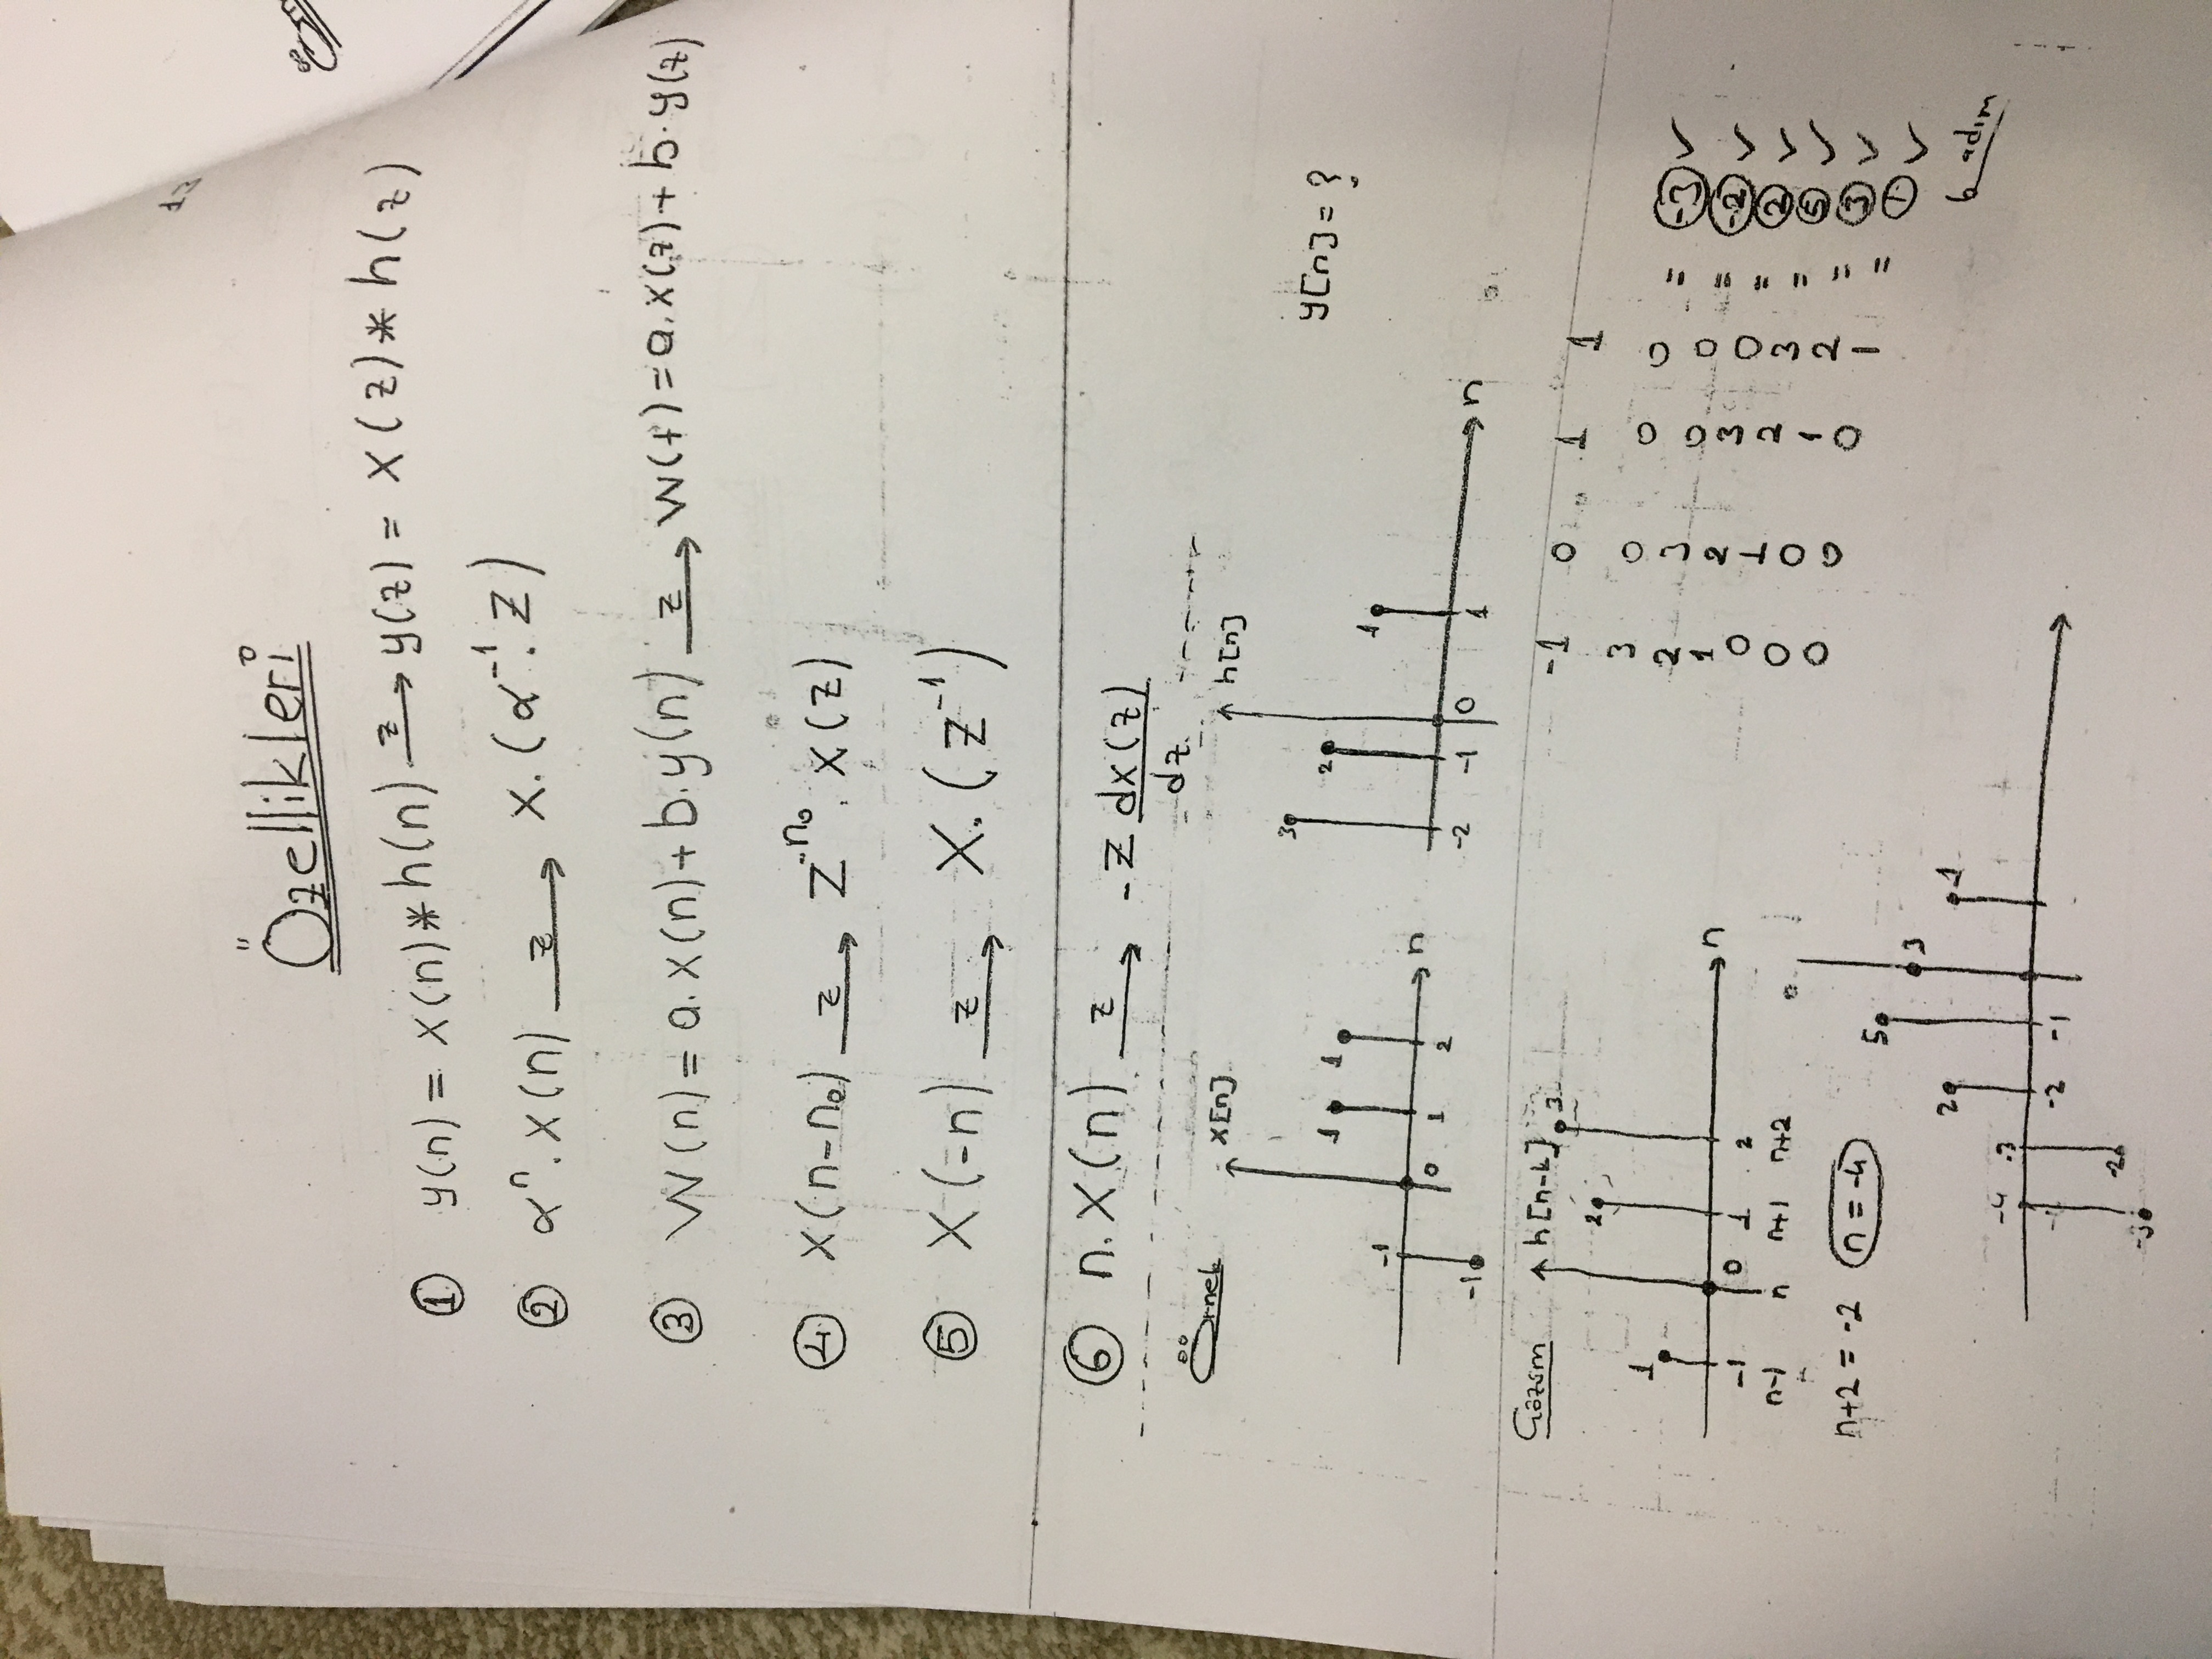 Özellikleri
① y(n) = x(n)*h(n) z→ y(z) = x(z)*h(z)
② α^n . x(n) z→ x.(α^-1 . z)
③ W(n) = a.x(n)+b.y(n) z→ W(t) = a.x(z)+b.y(z)
④ x(n-n₀) z→ z^-n₀ . x(z)
⑤ X(-n) z→ X.(z^-1)
⑥ n.X(n) z→ -z dx(z)
dz
Örnek x[n] h[n]
3
1 1 2 y[n] = ?
1
-1 n
0 1 2
-1
-2 -1 0 1 n
Çözüm h[n-k] 3
2
1
n
-1 0 1 2
n-1 n n+1 n+2
n+2 = -2 n = -4
-1 0 1 1
3 0 0 0 = -3 ✓
2 3 0 0 = -2 ✓
1 2 3 0 = 2 ✓
0 1 2 3 = 5 ✓
0 0 1 2 = 3 ✓
0 0 0 1 = 1 ✓
6 adım
5
3
2 1
-4 -3
-2 -1
-2
-3